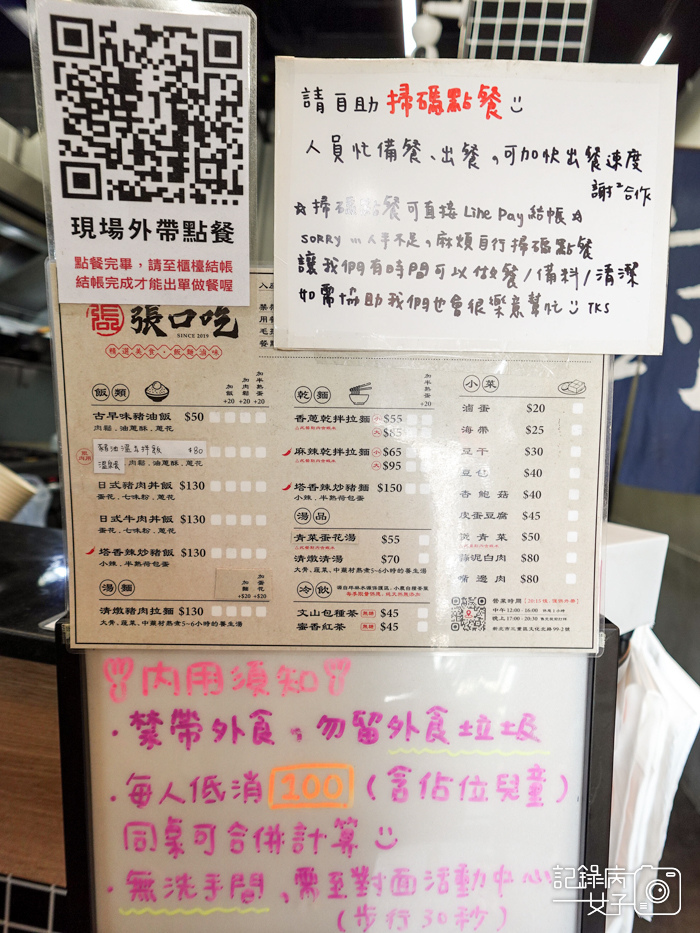 現場外帶點餐
點餐完畢，請至櫃檯結帳
結帳完成才能出單做餐喔
請自助掃碼點餐
人員忙備餐、出餐，可加快出餐速度
謝²合作
☆掃碼點餐可直接 Line Pay 結帳☆
SORRY...人手不足，麻煩自行掃碼點餐
讓我們有時間可以做餐/備料/清潔
如需協助我們也會很樂意幫忙 TKS
張口吃
SINCE 2019
精選美食・飯麵滷味
飯類 加飯+20 加肉鬆+20 加半熟蛋+20
古早味豬油飯 $50
肉鬆．油蔥酥．蔥花
豬油溫玉拌飯 $80
溫泉蛋 肉鬆．油蔥酥．蔥花
日式豬肉丼飯 $130
蛋花．七味粉．蔥花
日式牛肉丼飯 $130
蛋花．七味粉．蔥花
塔香辣炒豬飯 $130
小辣．半熟荷包蛋
湯麵 加麵+$20 加蛋花+$20
清燉豬肉拉麵 $130
大骨、蔬菜、中藥材熬煮5~6小時的養生湯
乾麵 加半熟蛋+20
香蔥乾拌拉麵 小$55
大$85
麻辣乾拌拉麵 小$65
大$95
塔香辣炒豬麵 $150
小辣．半熟荷包蛋
湯品
青菜蛋花湯 $55
清燉清湯 $70
大骨、蔬菜、中藥材熬煮5~6小時的養生湯
冷飲
文山包種茶 無糖 $45
蜜香紅茶 無糖 $45
小菜
滷蛋 $20
海帶 $25
豆干 $30
豆包 $40
杏鮑菇 $40
皮蛋豆腐 $45
燙青菜 $50
蒜泥白肉 $80
嘴邊肉 $80
營業時間
中午 12:00 - 16:00
晚上 17:00 - 20:30
新北市三重區文化北路99-2號
內用須知
・禁帶外食，勿留外食垃圾
・每人低消100（含佔位兒童）
同桌可合併計算
・無洗手間、需至對面活動中心
（步行30秒）
記錄病女子